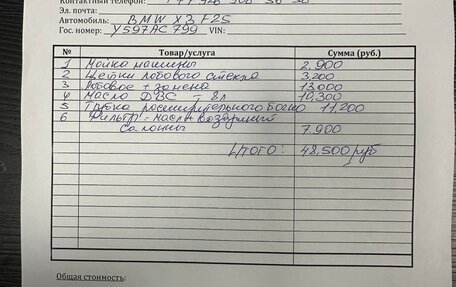 Контактный телефон:
Эл. почта:
Автомобиль: BMW X3 F25
Гос. номер: У597АС 799 VIN:
№ Товар/услуга Сумма (руб.)
1 Мойка машины 2.900
2 Щетки лобового стекла 3,200
3 Лобовое + замена 13,000
4 Масло ДВС - 8л 10,300
5 Трубка расширительного бачка 11,200
6 Фильтр - масл воздушный
Салонны 7.900
ИТОГО: 48,500 руб
Общая стоимость: